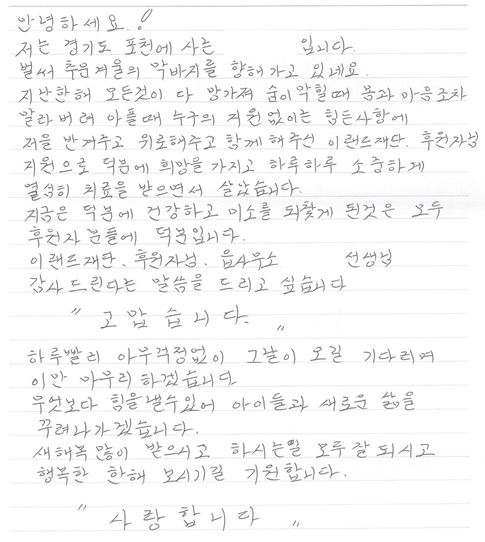 안녕하세요!
저는 경기도 포천에 사는 입니다.
벌써 추운겨울의 막바지를 향해가고 있네요.
지난한해 모든것이 다 망가져 숨이막힐때 몸과 마음조차
말라버려 아플때 누구의 지원없이는 힘든사항에
저를 반겨주고 위로해주고 함께해주신 이랜드재단. 후원자님
지원으로 덕분에 희망을 가지고 하루하루 소중하게
열심히 치료를 받으면서 살았습니다.
지금은 덕분에 건강하고 미소를 되찾게 된것은 모두
후원자 분들에 덕분입니다.
이랜드재단, 후원자님. 읍사무소 선생님
감사드린다는 말씀을 드리고 싶습니다
" 고맙습니다. "
하루빨리 아무걱정없이 그날이 오길 기다리며
이만 마무리하겠습니다.
무엇보다 힘을낼수있어 아이들과 새로운 삶을
꾸려나가겠습니다.
새해복많이 받으시고 하시는일 모두잘되시고
행복한 한해 보시기릴 기원합니다.
" 사랑합니다 "